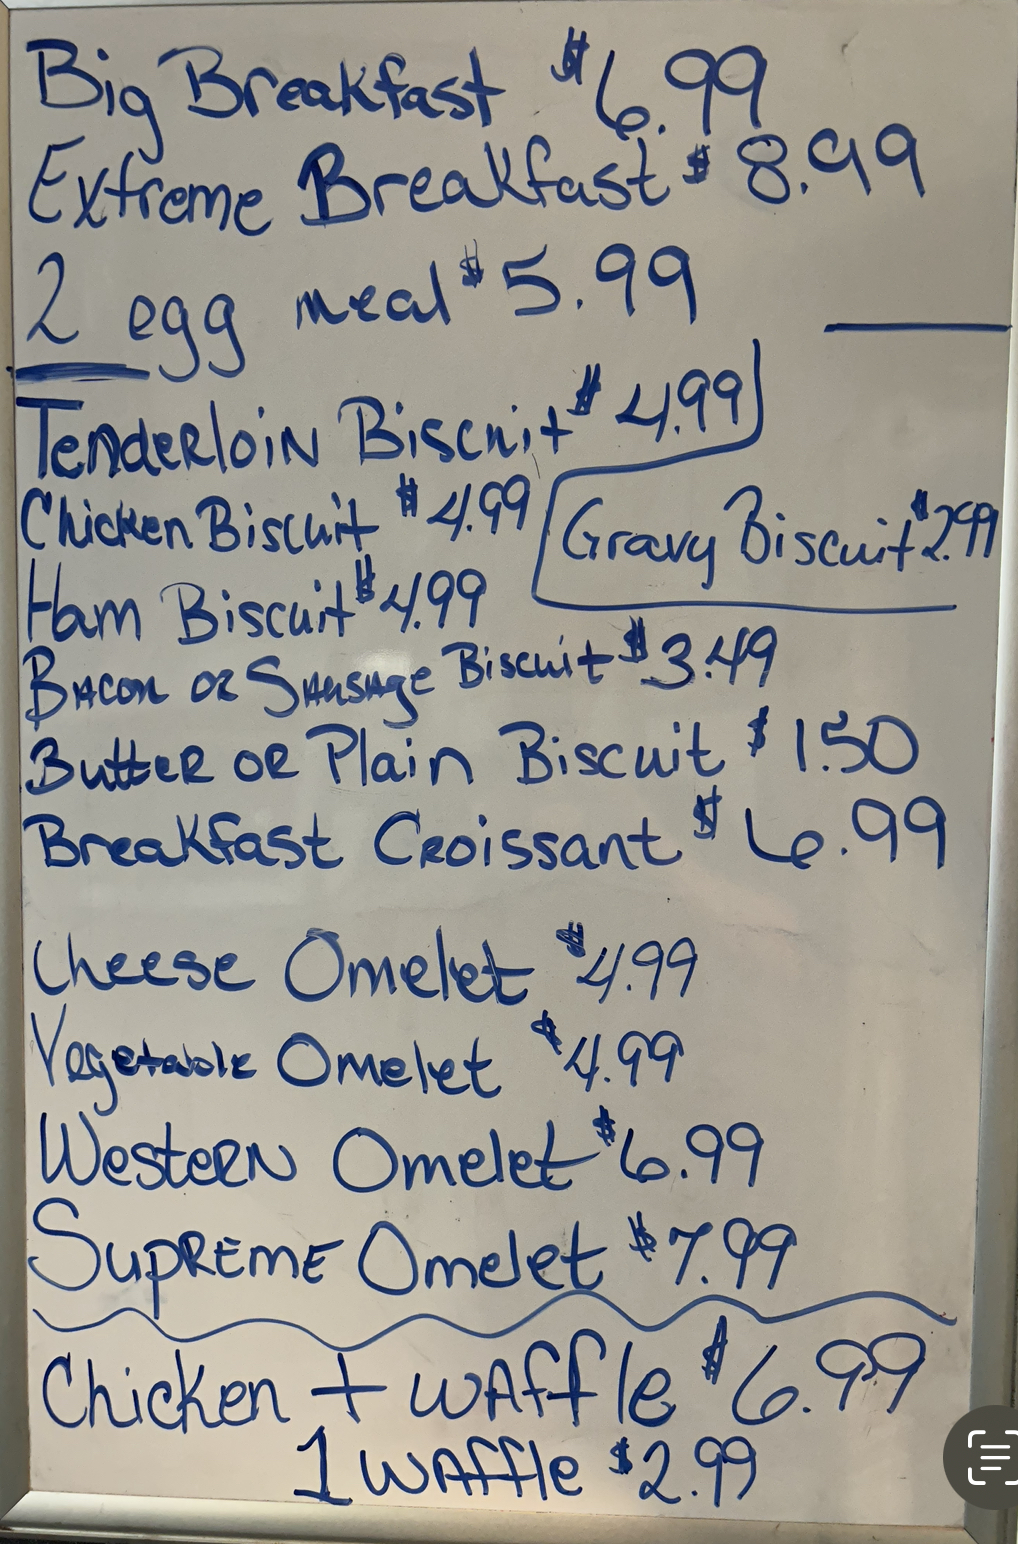 Big Breakfast $6.99
Extreme Breakfast $8.99
2 egg meal $5.99
Tenderloin Biscuit $4.99
Chicken Biscuit $4.99
Gravy Biscuit $2.99
Ham Biscuit $4.99
Bacon or Sausage Biscuit $3.49
Butter or Plain Biscuit $1.50
Breakfast Croissant $6.99
Cheese Omelet $4.99
Vegetable Omelet $4.99
Western Omelet $6.99
Supreme Omelet $7.99
Chicken + Waffle $6.99
1 Waffle $2.99